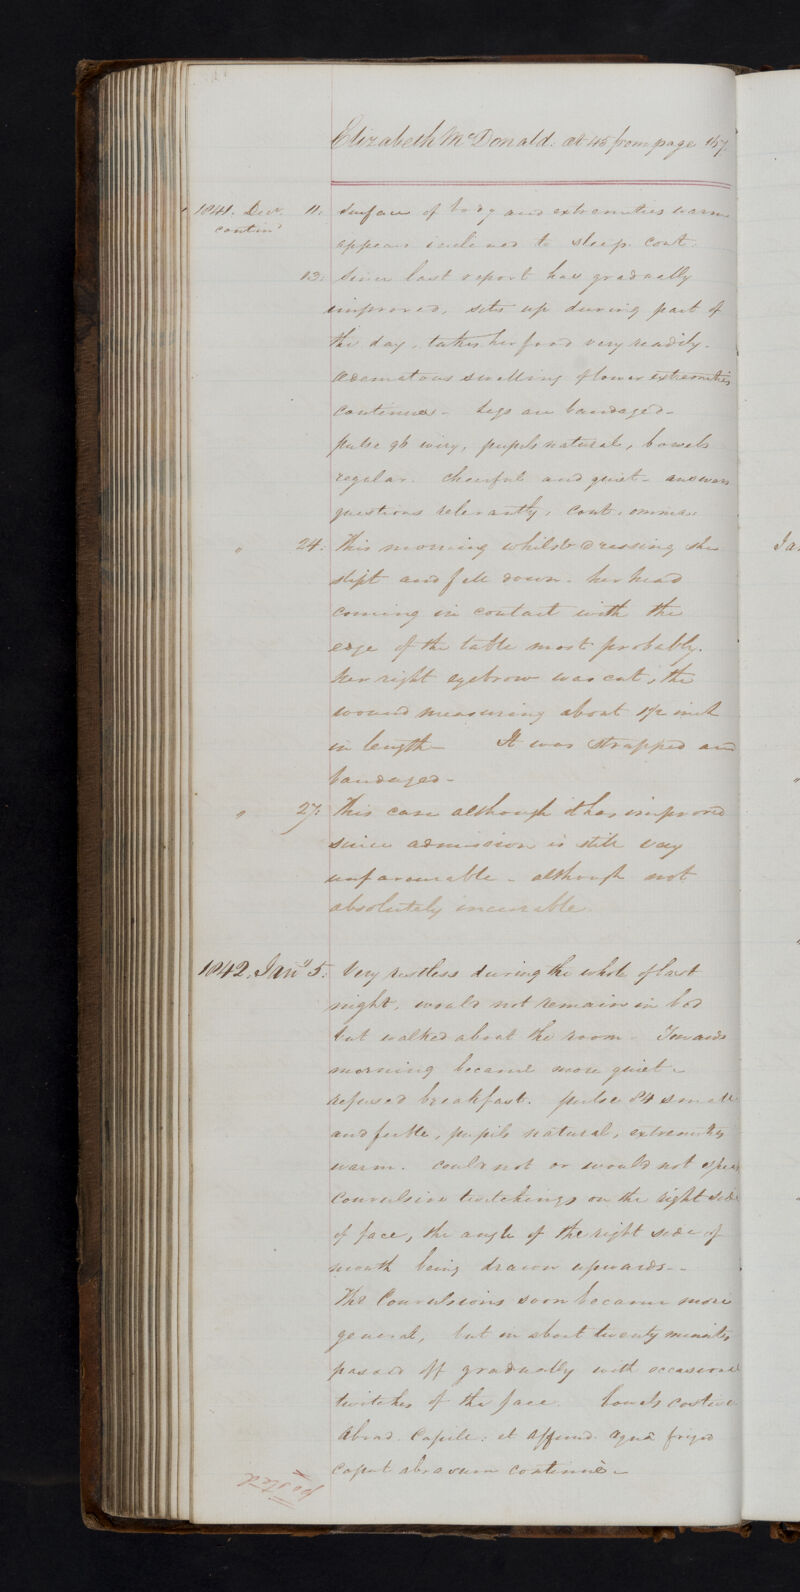 Elizabeth McDonald. æt 45 from page 157.
1841. Decr. 11. Surface of body and extremities warm
contind appears inclined to sleep. Cont.
13: Since last report has gradually
improved, sits up during part of
the day, takes her food very readily.
Œdematous swelling of lower extremities
continues - Legs are bandaged -
pulse 96 wiry, pupils natural, bowels
regular. Cheerful and quiet - answers
questions relevantly, Cont. omnia.
" 24: This morning whilst dressing she
slipt and fell down. her head
coming in contact with the
edge of the table most probably.
her right eyebrow was cut, the
wound measuring about 1½ inch
in length - It was strapped and
bandaged -
" 27: This case although it has improved
since admission is still very
unfavourable - although not
absolutely incurable.
1842. Jany 5: Very restless during the whole of last
night, would not remain in bed
but walked about the room - Towards
morning became more quiet -
refused breakfast. pulse 84 small
and feeble, pupils natural, extremities
warm. Could not or would not speak
Convulsive twitchings on the right side
of face, the angle of the right side of
mouth being drawn upwards -
The Convulsions soon became more
general, but in about twenty minutes
passed off gradually with occasional
twitches of the face. bowels costive
Abrad. Capill: et affund. aquæ frigid
caput abrasum continuè -
Jan